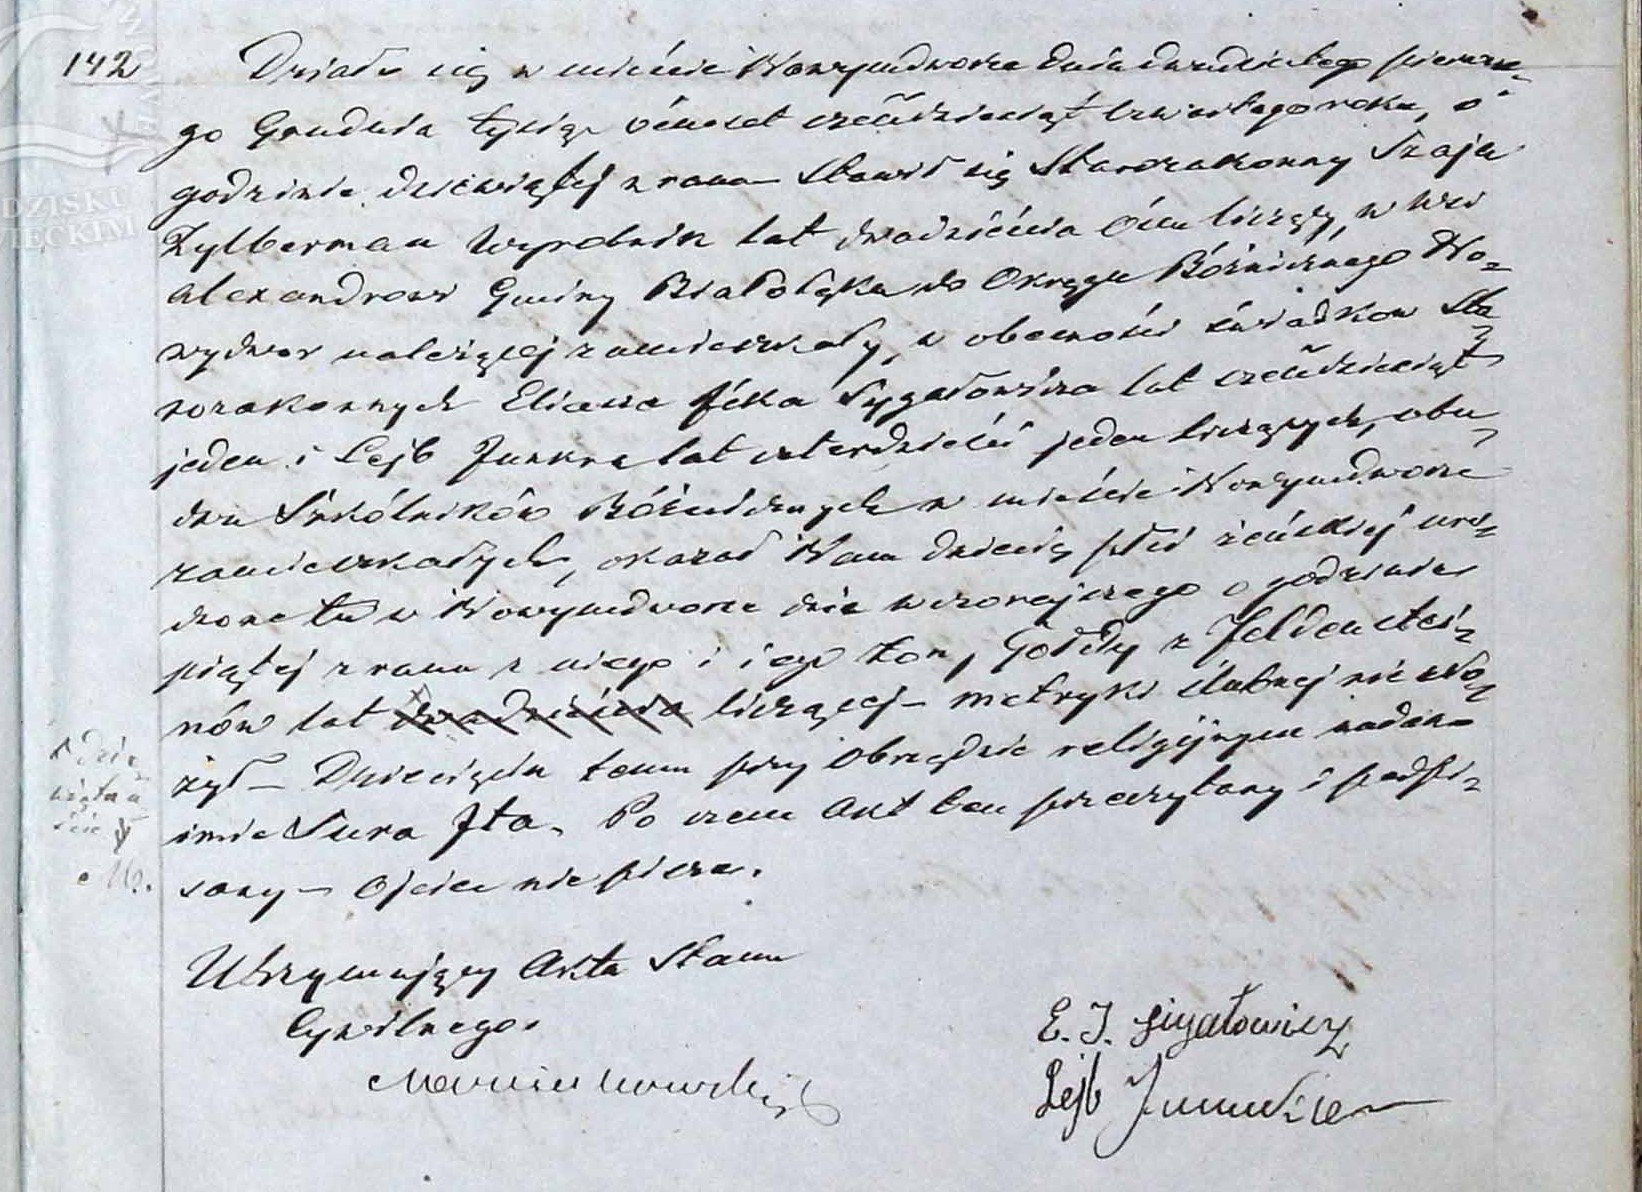 142 Działo się w mieście Nowymdworze dnia dwudziestego pierwsze-
go Grudnia tysiąc ośmset sześćdziesiąt czwartego roku, o
godzinie dziewiątej z rana Stawił się Starozakonny Szaja
Zylberman Wyrobnik lat dwadzieścia ośm liczący, w wsi
Alexandrowi Gminy Białołęka do Okręgu Bóżniczego No-
wydwor należącej zamieszkały, w obecności świadków Sta-
rozakonnych Eliasza Icka Sygałowicza lat sześćdziesiąt
jeden i Lejb Junkra lat czterdzieści jeden liczących, obu-
dwu Szkólników Bóżniczych w mieście Nowymdworze
zamieszkałych, okazał Nam dziecię płci żeńskiej uro-
dzone tu w Nowymdworze dnia wczorajszego o godzinie
piątej z rana z niego i jego żony Gołdy z Feldenstei-
nów lat dwadzieścia liczącej – metryki ślubnej nie zło-
żył – Dziecięciu temu przy Obrzędzie religijnym nadano
imie Sura Ita. Po czem Akt ten przeczytany i podpi-
sany – Ojciec nie pisze.
dzie-
więtna-
ście
Utrzymujący Akta Stanu
Cywilnego.
E. I. Sygałowicz
Lejb Junkier